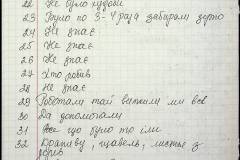 22 Не було худоби
23 Було по 3-4 раза забирали зерно
24 Не знає
25 Не знає
26 Не знає
27 Хто робив
28 Не знає
29 Работали тай вижили ми всі
30 Да допомагали
31 Все що було то їли
32 Кропиву, щавель, листья з
дерев